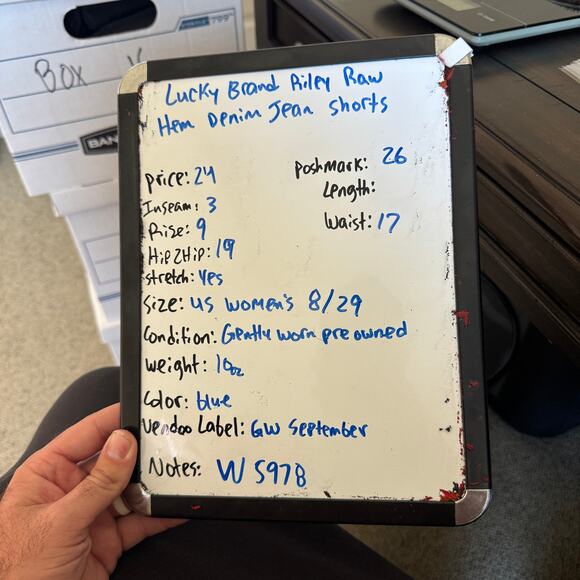 Lucky Brand Riley Raw
Hem Denim Jean Shorts
Price: 24
Poshmark: 26
Inseam: 3
Length:
Rise: 9
Waist: 17
Hip2Hip: 19
stretch: Yes
Size: US women's 8/29
Condition: Gently worn pre owned
Weight: 10oz
Color: blue
Vendoo Label: GW September
Notes: W 5978
BOX
BAN
799